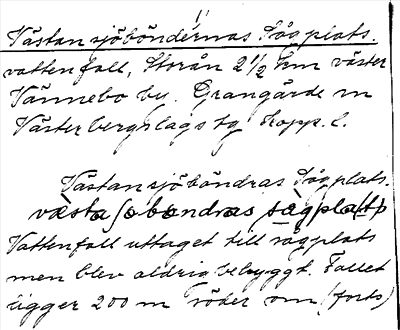 Västansjöböndernas Sågplats.
vattenfall, Storån 2 1/2 km väster
Vännebo by. Grangärde sn
Västerbergslags tg Kopp. l.
Västansjöböndras Sågplats.
Vattenfall uttaget till sågplats
men blev aldrig bebyggt. Fallet
ligger 200 m söder om (forts)